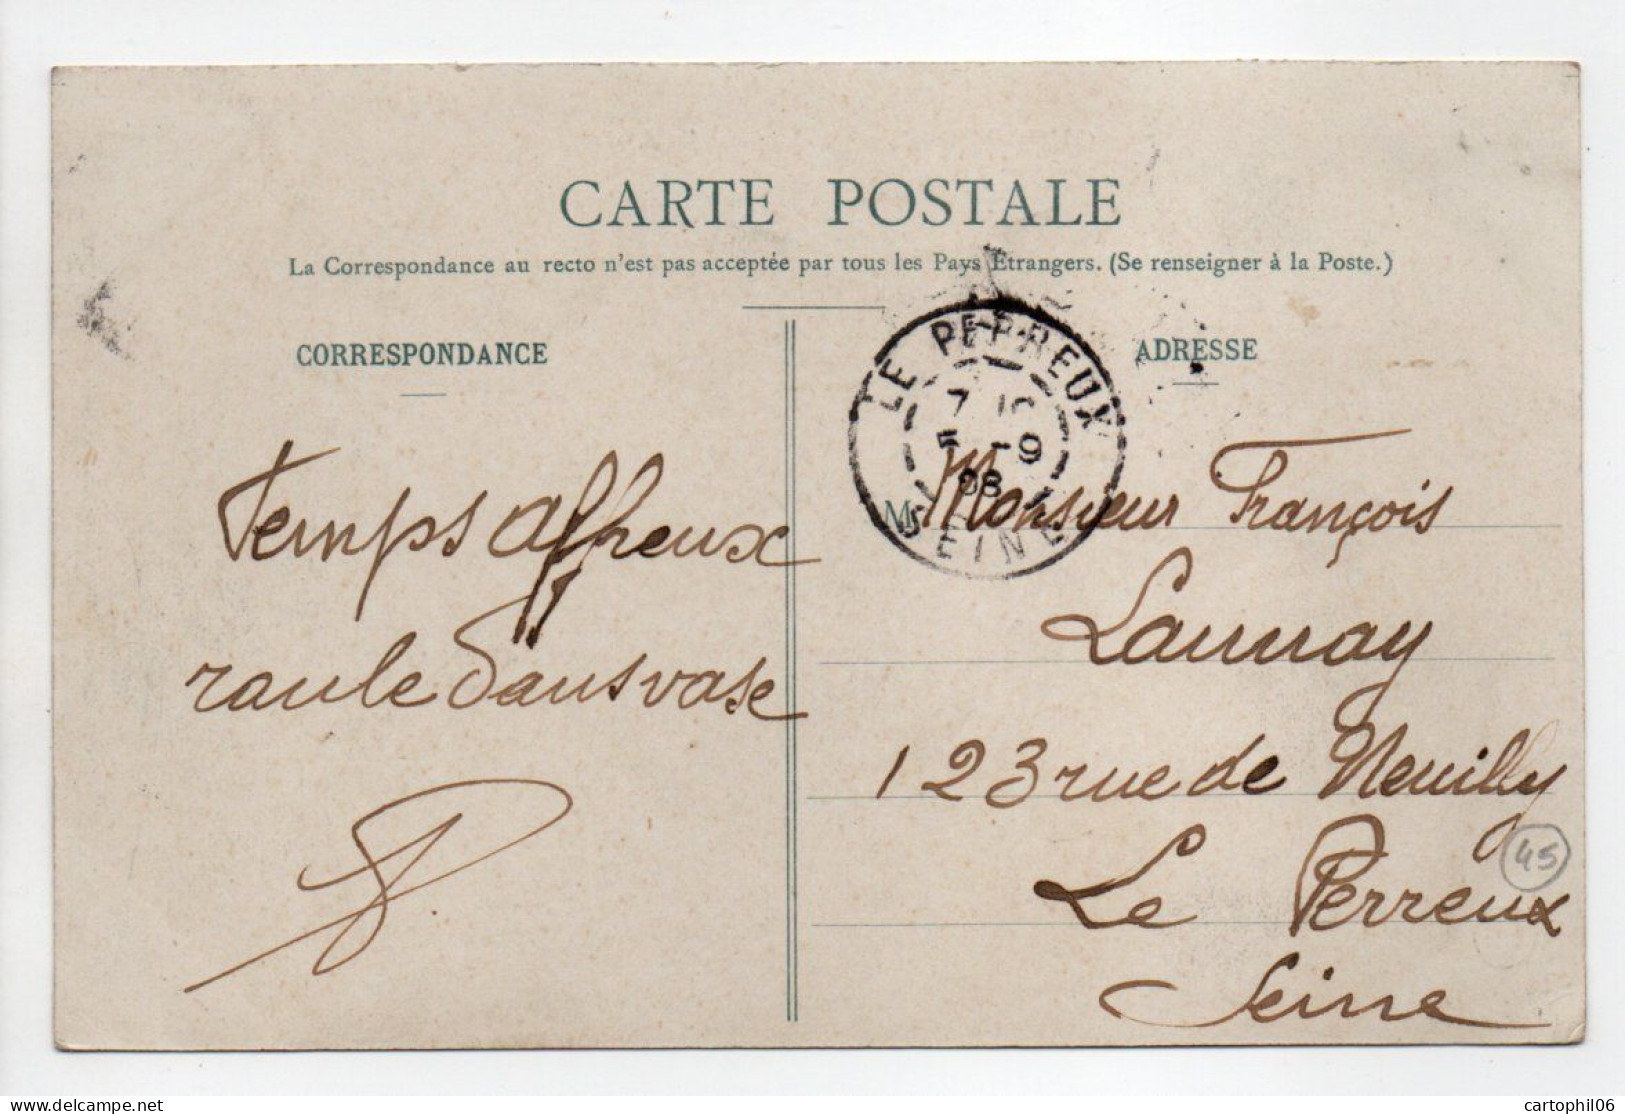 CARTE POSTALE
La Correspondance au recto n'est pas acceptée par tous les Pays Etrangers. (Se renseigner à la Poste.)
CORRESPONDANCE
ADRESSE
LE PERREUX
7 10
5 -9
08
SEINE
Temps affreux
roule dans vase
M Monsieur François
Launay
123 rue de Neuilly
Le Perreux
Seine
45
cartophil06